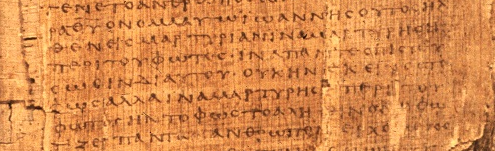 ΡΑΘΥΟΝΟΜΑΑΥΤΩΙΩΑΝΝΗϹΟΥΤΟϹΗΛ
ΘΕΝΕΙϹΜΑΡΤΥΡΙΑΝΙΝΑΜΑΡΤΥΡΗϹΗ
ΠΕΡΙΤΟΥΦΩΤΟϹΙΝΑΠΑΝΤΕϹΠΙϹΤΕΥ
ϹΩϹΙΝΔΙΑΥΤΟΥ·ΟΥΚΗΝΕΚΕΙΝΟϹΤΟ
ΦΩϹΑΛΛΑΙΝΑΜΑΡΤΥΡΗϹΗΠΕΡΙΤΟΥ
ΦΩΤΟϹΗΝΤΟΦΩϹΤΟΑΛΗ ΝΟΝΟΦΩ
ΤΙΖΕΙΠΑΝΤΑΑΝΘΡΩΠΟΝ